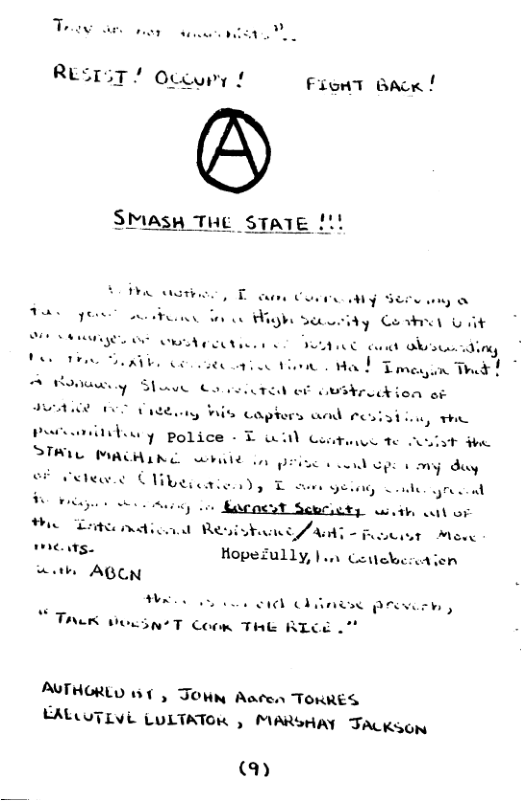 They are not anarchists"..
RESIST! OCCUPY! FIGHT BACK!
A
SMASH THE STATE!!!
the author, I am currently serving a
year sentence in a High Security Control Unit
on charges of obstruction of Justice and absconding
for the sixth consecutive time. Ha! Imagine That!
A Runaway Slave convicted of obstruction of
Justice for fleeing his captors and resisting the
paramilitary Police. I will continue to resist the
STATE MACHINE while in prison and upon my day
of release (liberation), I am going underground
to begin working in Earnest Sobriety with all of
the International Resistance/Anti-Fascist Move-
ments. Hopefully, in Collaboration
with ABCN
there is an old chinese proverb,
"TALK DOESN'T COOK THE RICE."
AUTHORED BY, JOHN Aaron TORRES
EXECUTIVE EDITATOR, MARSHAY JACKSON
(9)